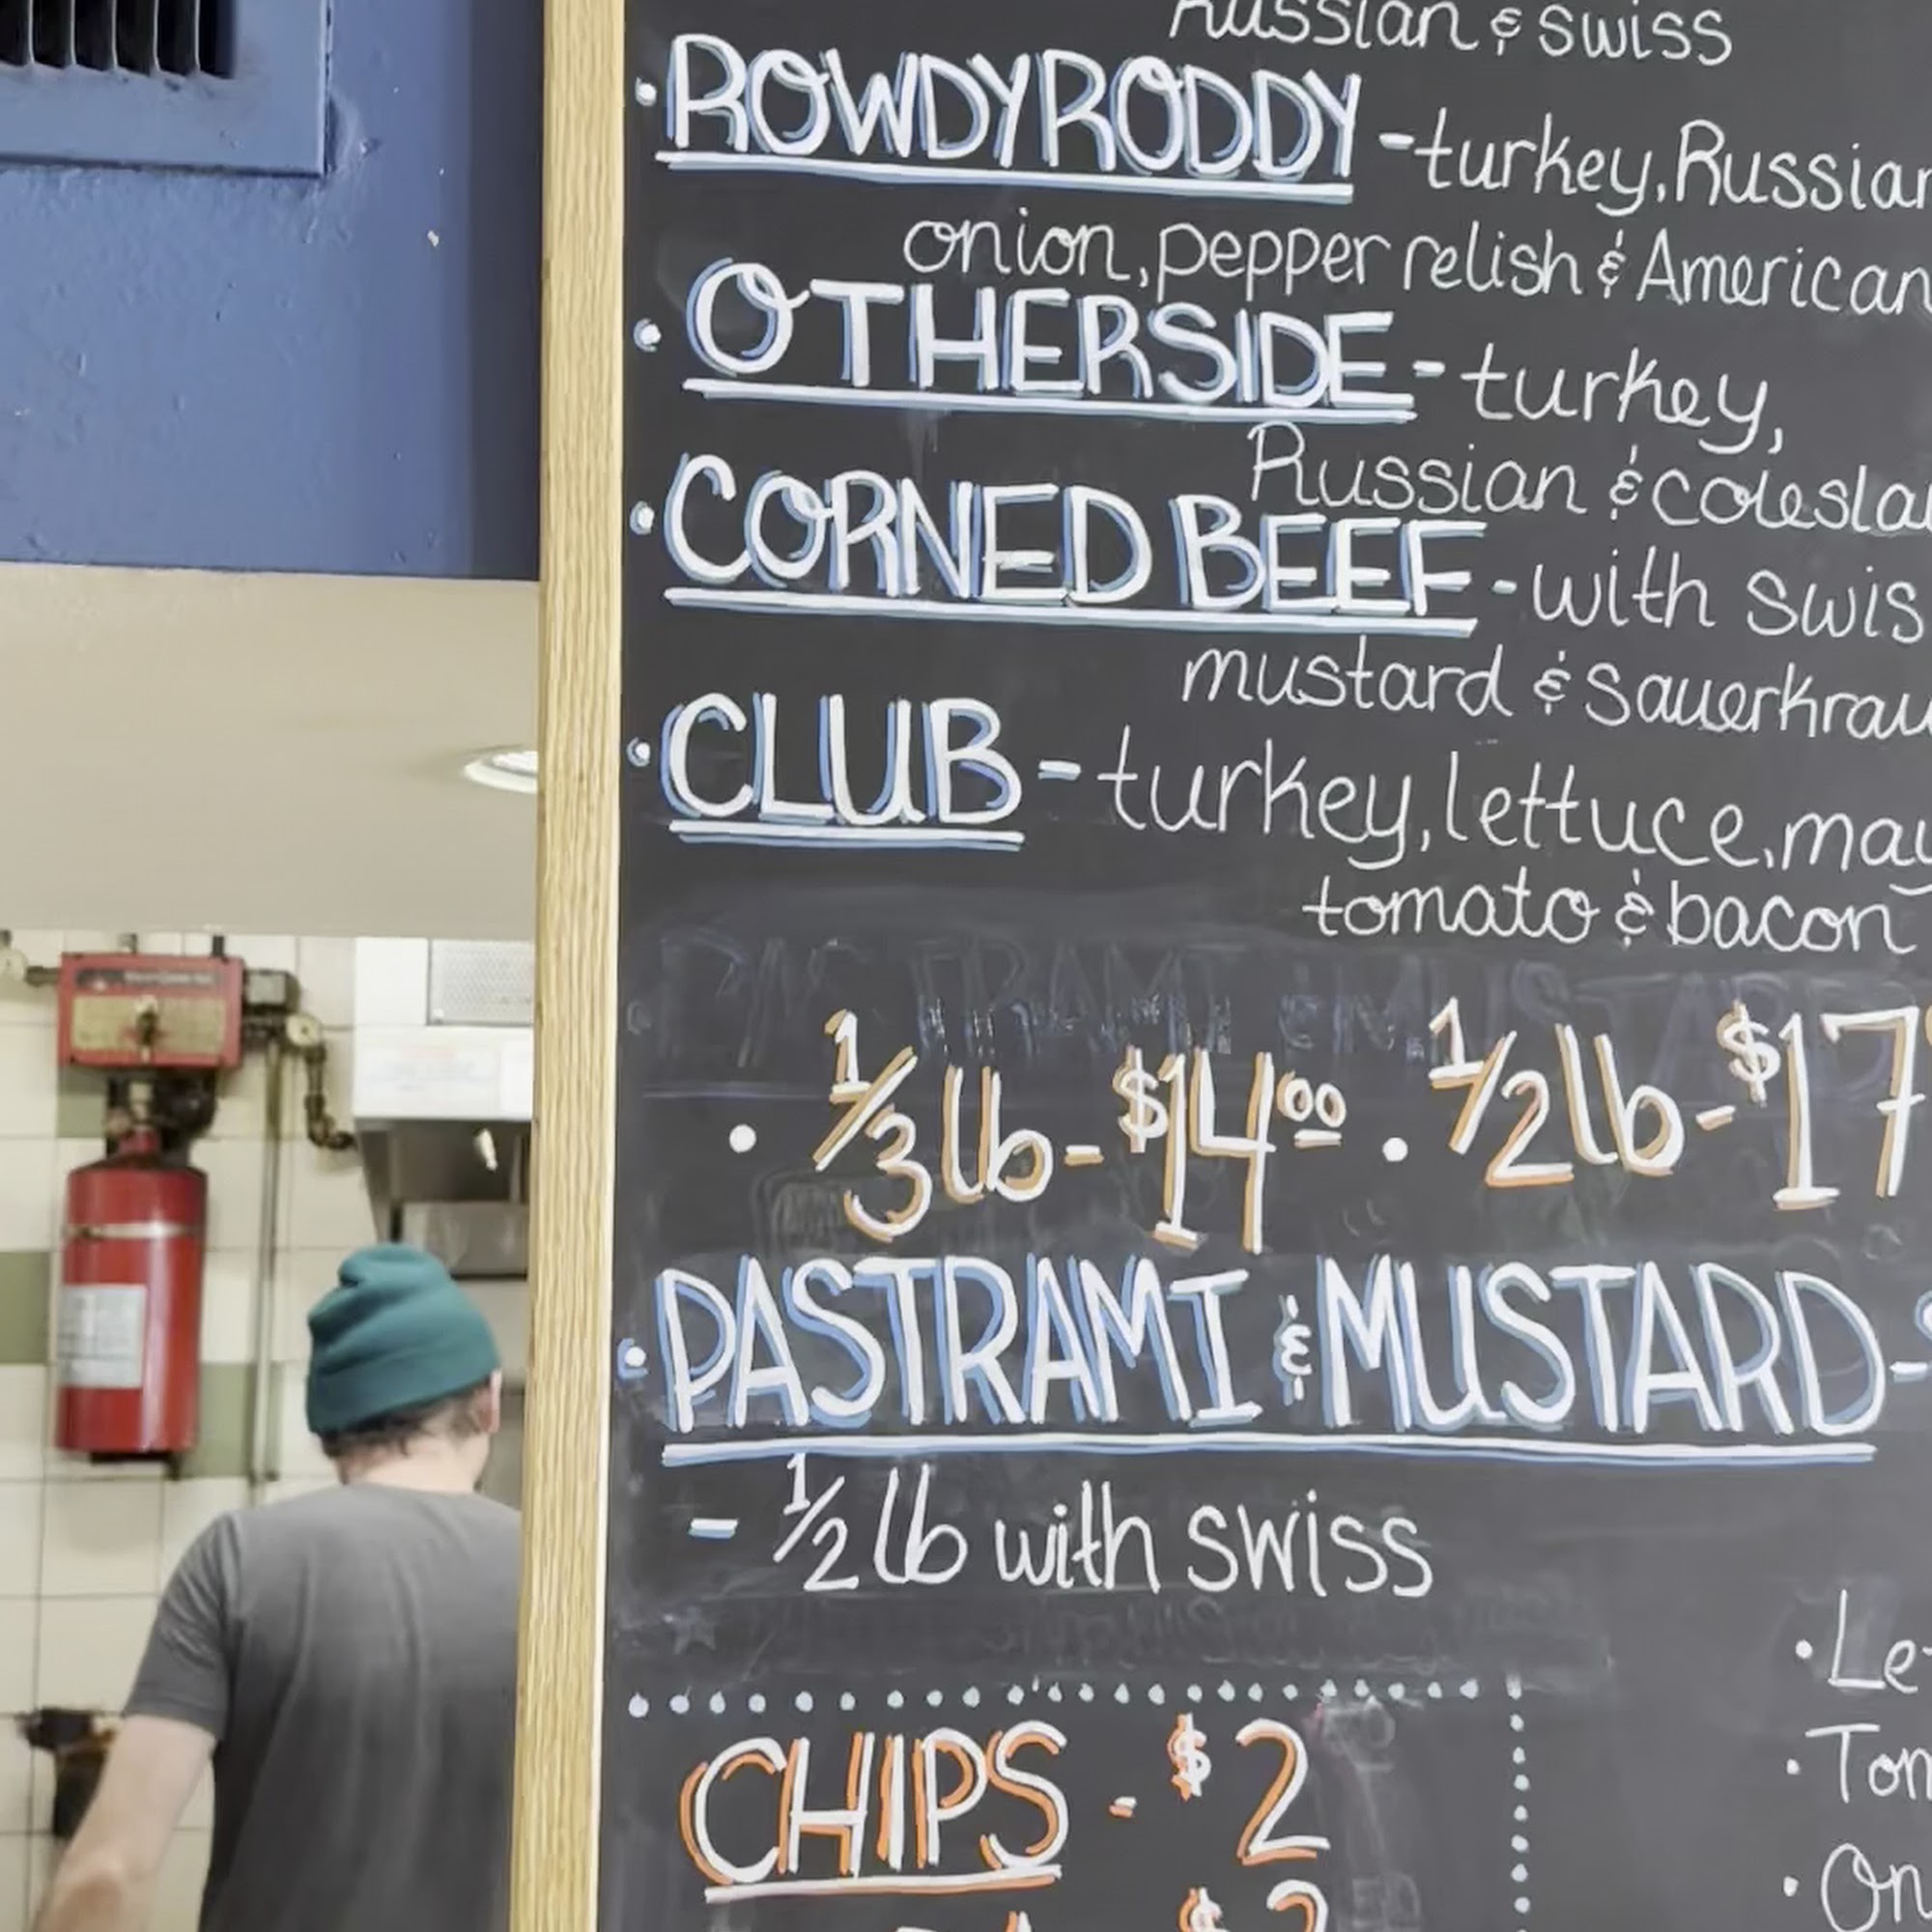 Russian & swiss
• ROWDY RODDY - turkey, Russian
onion, pepper relish & American
• OTHERSIDE - turkey,
Russian & coleslaw
• CORNED BEEF - with swis
mustard & sauerkrau
• CLUB - turkey, lettuce, may
tomato & bacon
PASTRAMI & MUSTARD
• 1/3 lb - $14.00 • 1/2 lb - $17
• PASTRAMI & MUSTARD -
- 1/2 lb with swiss
CHIPS - $2
$2
• Le
• Tom
• On